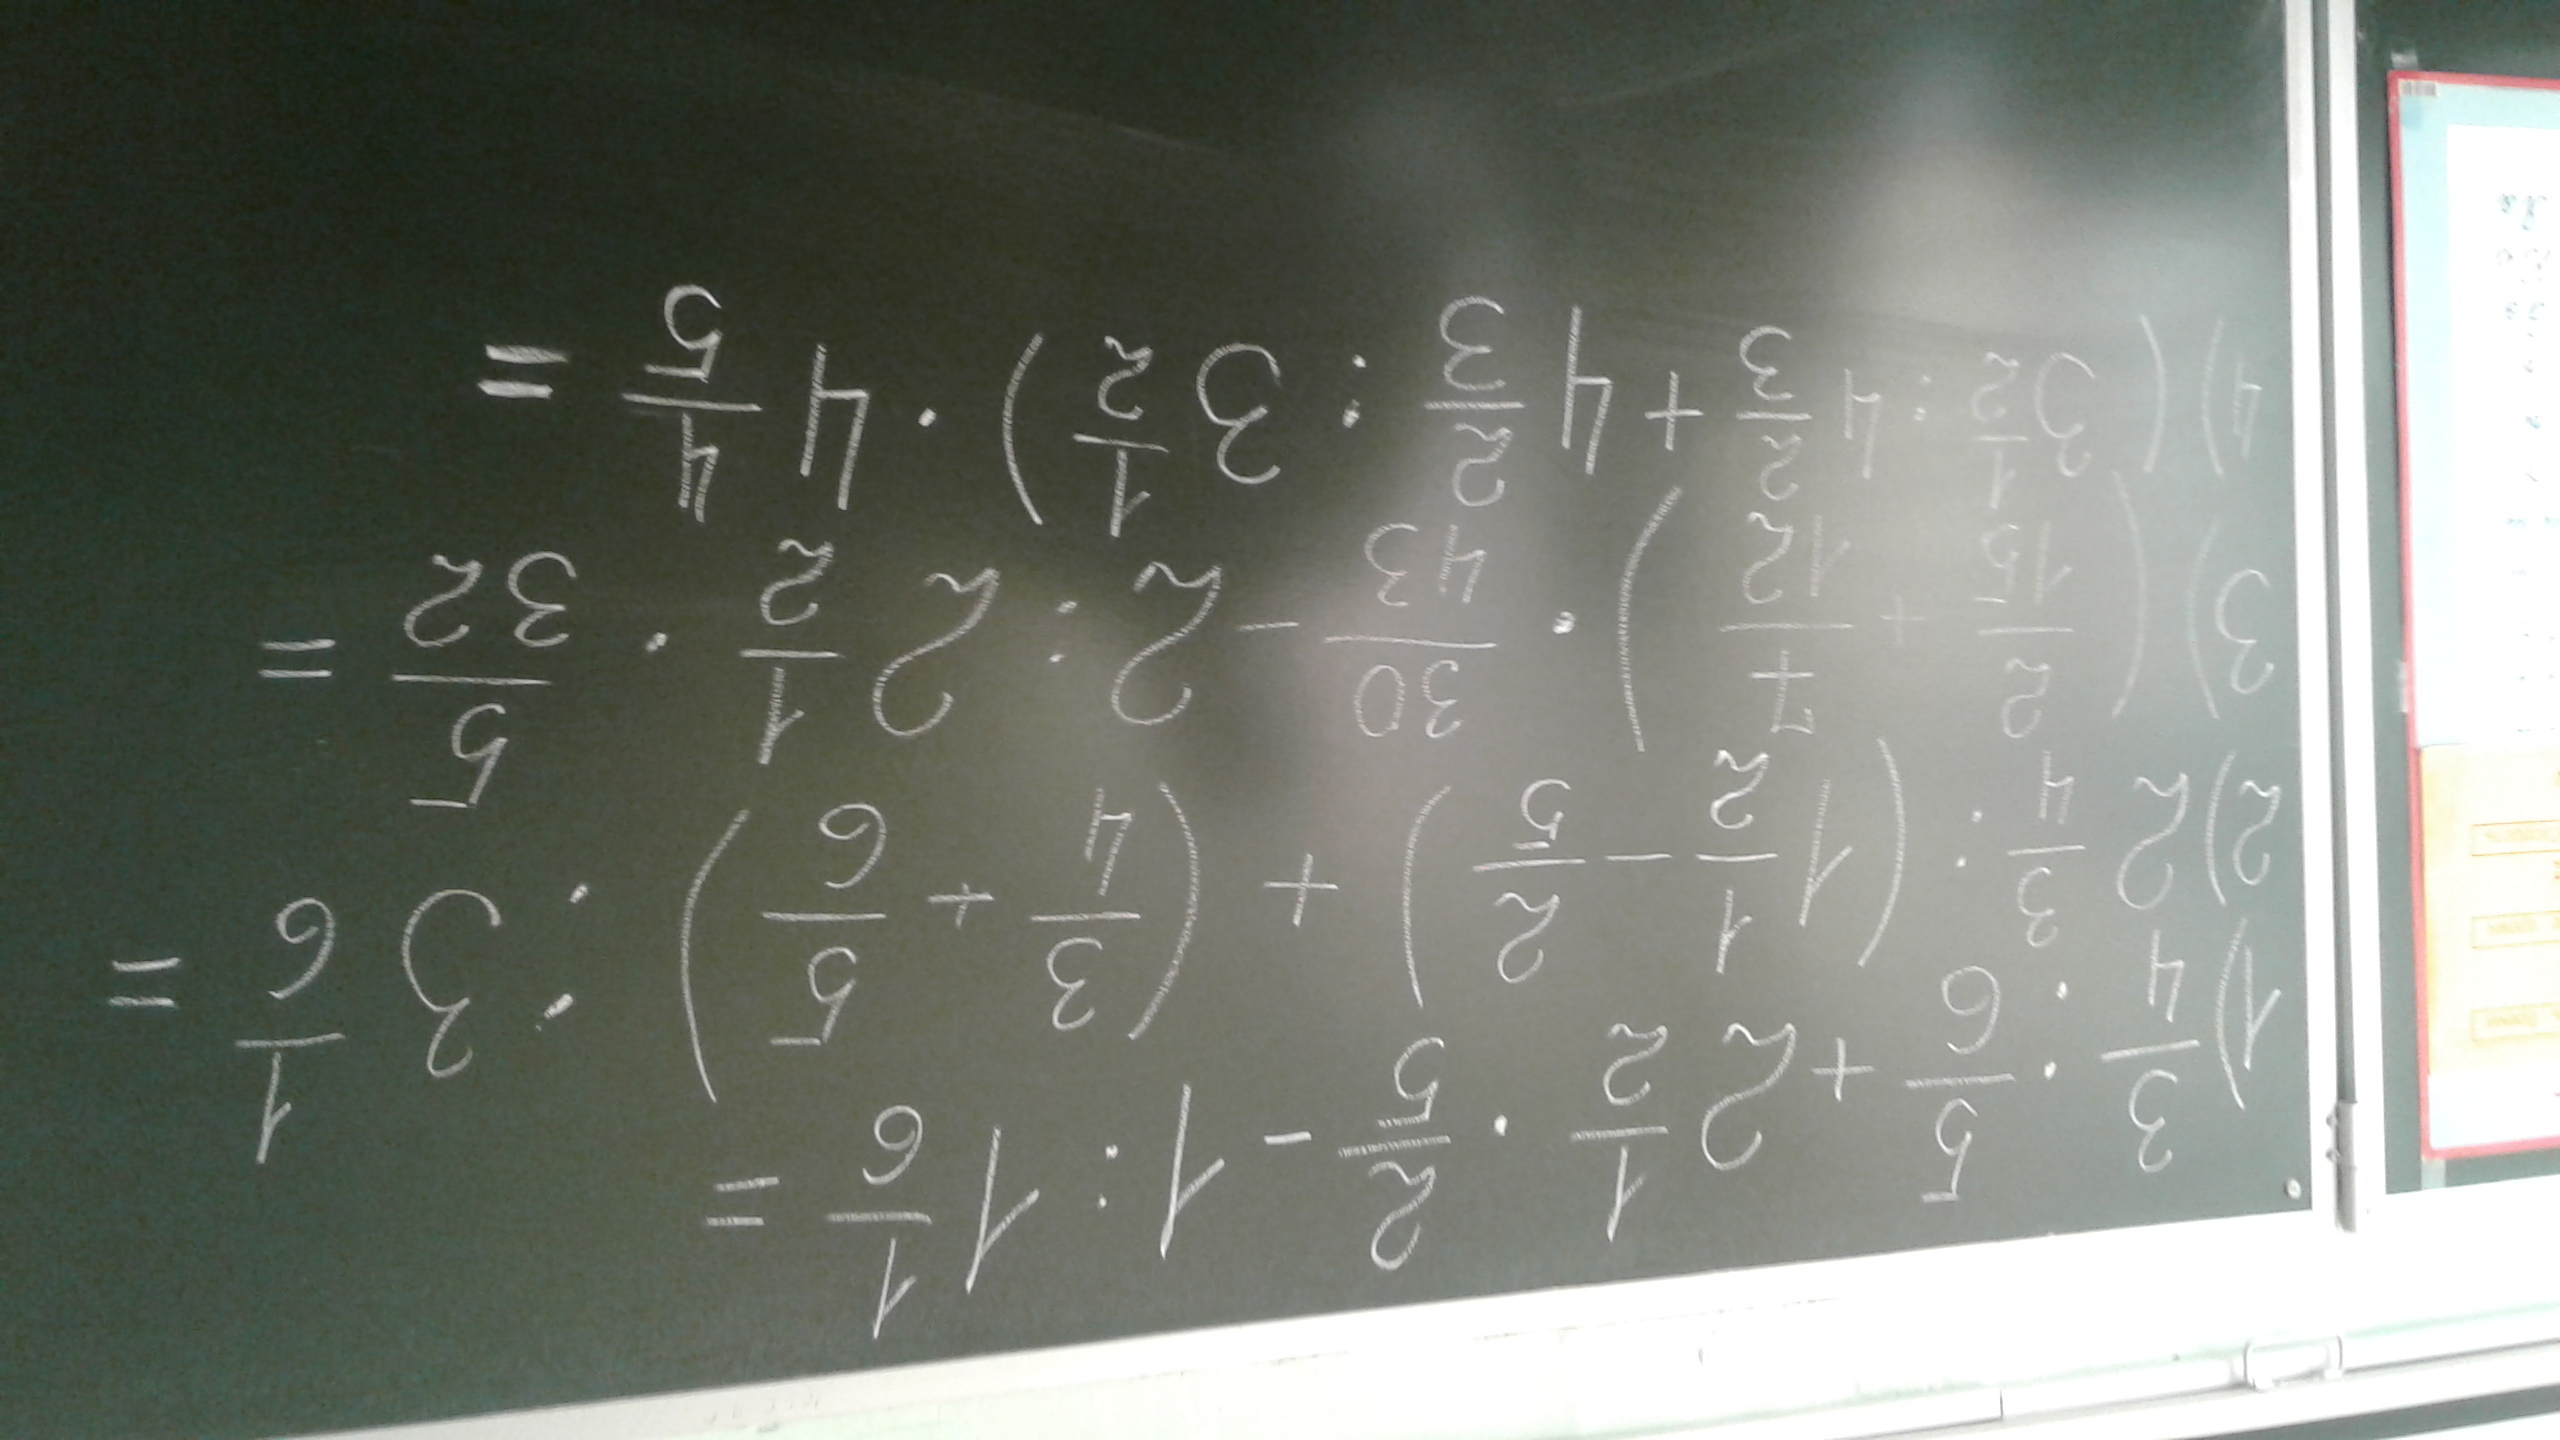 1) 3/4 : 5/6 + 2 1/2 · 2/5 - 1 : 1 1/6 =
2) 2 3/4 : (1 1/2 - 2/5) + (3/4 + 5/6) : 3 1/6 =
3) (2/15 + 7/12) · 30/43 - 2 : 2 1/2 · 5/32 =
4) (3 1/2 : 4 2/3 + 4 2/3 : 3 1/2) · 4 4/5 =